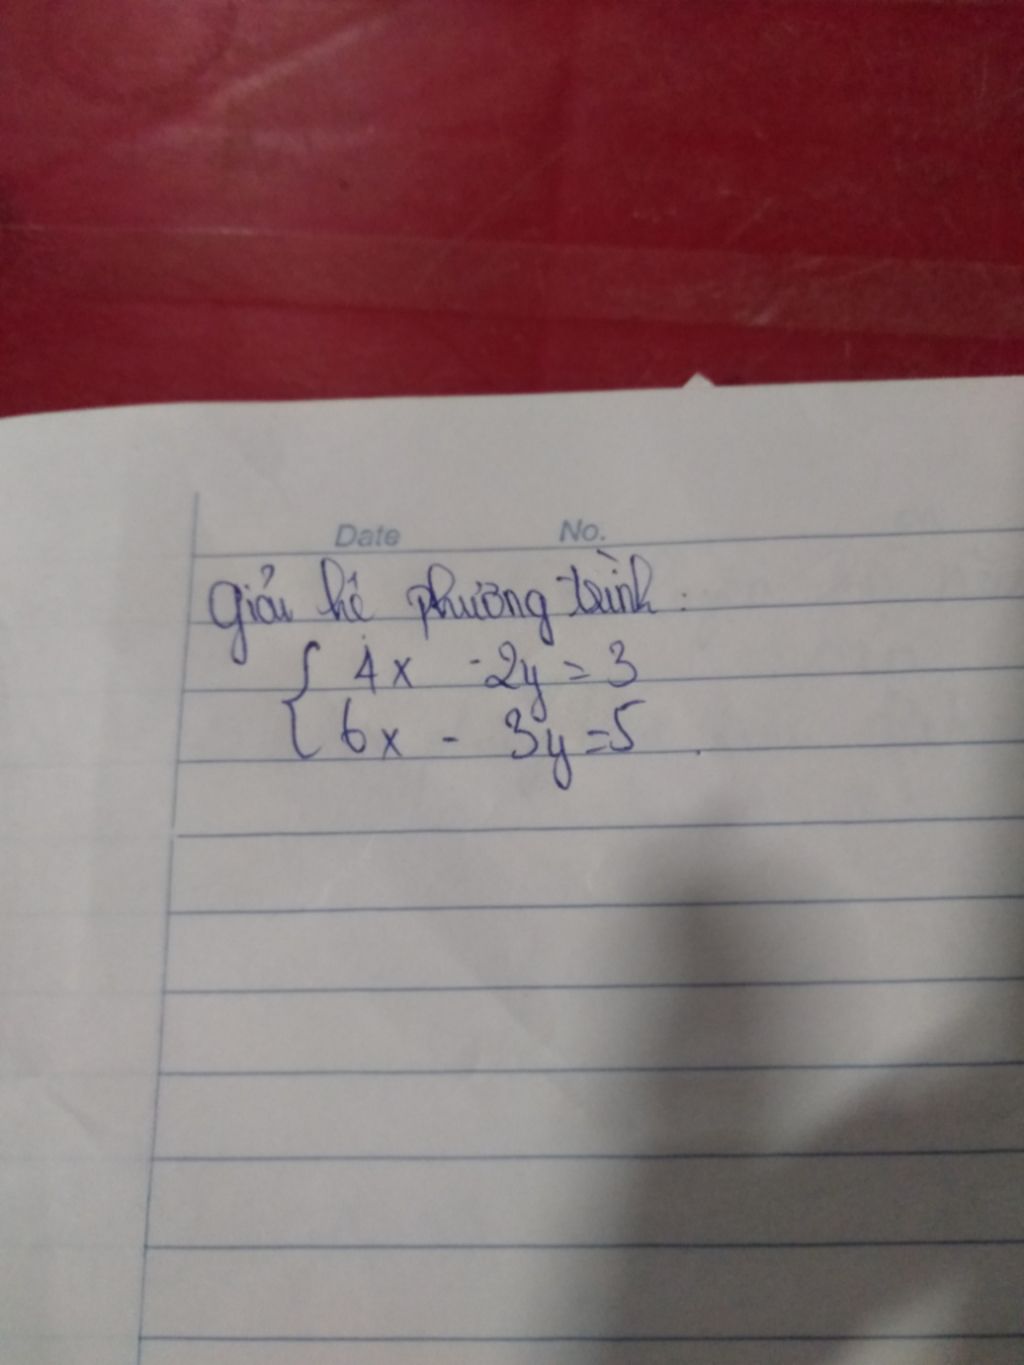 Date No.
Giải hê phương trình:
{ 4x - 2y = 3
6x - 3y = 5.